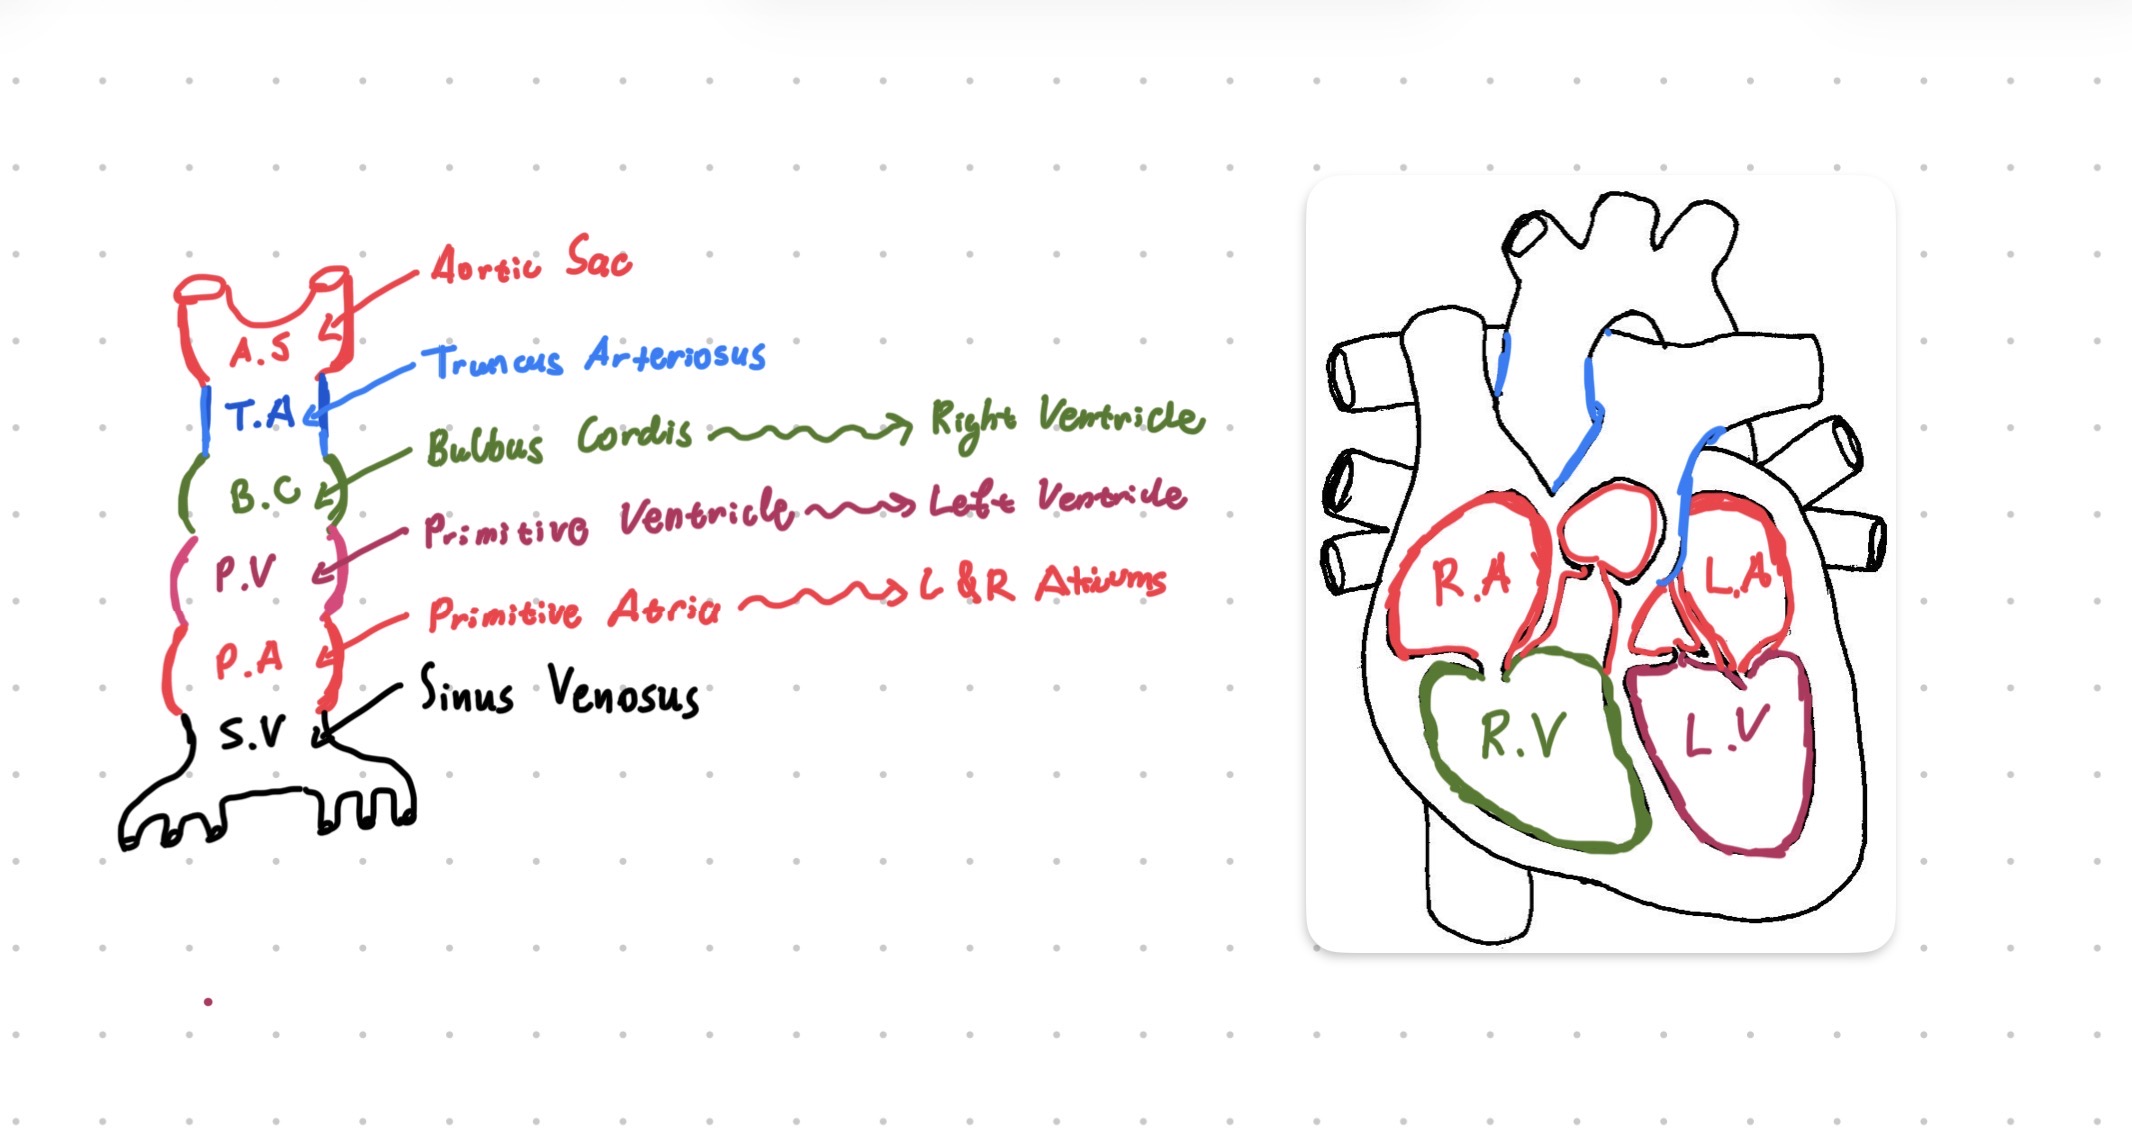 Aortic Sac
A.S
Truncus Arteriosus
T.A
Bulbus Cordis → Right Ventricle
B.C
Primitive Ventricle → Left Ventricle
P.V
Primitive Atria → L & R Atiums
P.A
Sinus Venosus
S.V
R.A
L.A
R.V
L.V